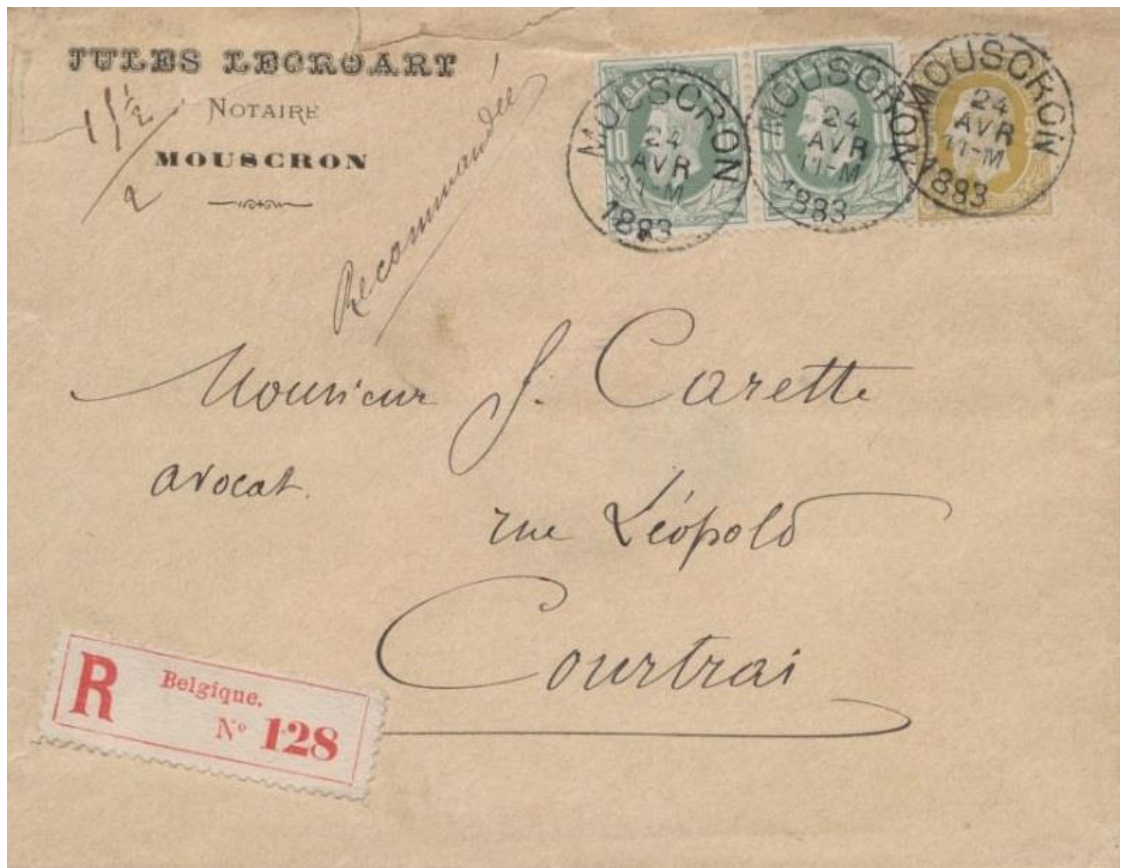 JULES LECROART
NOTAIRE
MOUSCRON
15 1/2
2
Recommandée
MOUSCRON
24
AVR
11-M
1883
MOUSCRON
24
AVR
11-M
1883
MOUSCRON
24
AVR
11-M
1883
Monsieur J. Carette
avocat.
rue Léopold
Courtrai
R Belgique.
Nº 128